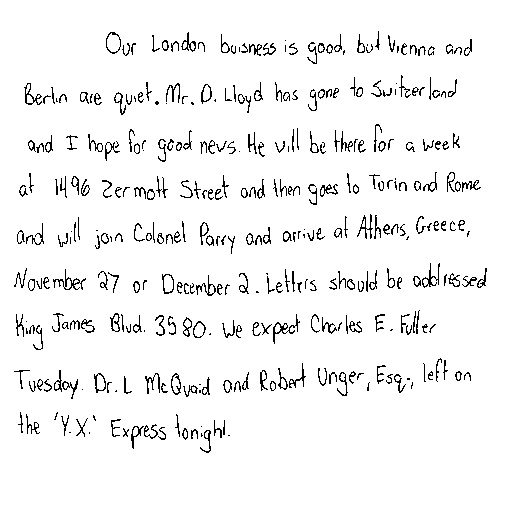 Our London buisness is good, but Vienna and
Berlin are quiet. Mr. D. Lloyd has gone to Switzerland
and I hope for good news. He will be there for a week
at 1496 Zermott Street and then goes to Turin and Rome
and will join Colonel Parry and arrive at Athens, Greece,
November 27 or December 2. Letters should be addressed
King James Blvd. 3580. We expect Charles E. Fuller
Tuesday. Dr. L McQuaid and Robert Unger, Esq., left on
the 'Y.X.' Express tonight.